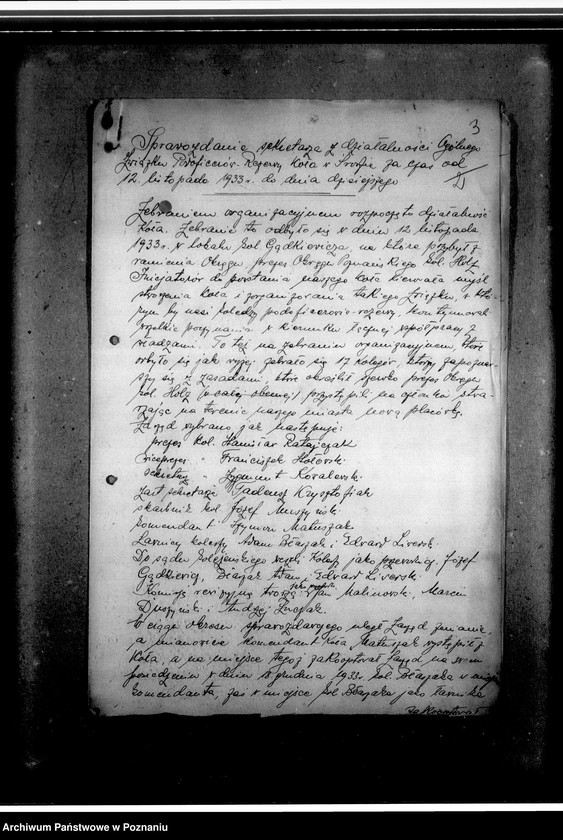 3
Sprawozdanie sekretarza z działalności Ogólnego
Związku Podoficerów Rezerwy Koła w za czas od
12. listopada 1933 r. do dnia dzisiejszego
Zebraniem organizacyjnem rozpoczęto działalność
Koła. Zebranie to odbyło się w dniu 12 listopada
1933 r. w lokalu kol. Gądkiewicza, na które przybył z
ramienia Okręgu prezes Okręgu Poznańskiego kol. Holz
Inicjatorów do powstania naszego koła kierowała myśl
stworzenia koła i zorganizowania takiego związku, w któ-
rym by nasi koledzy podoficerowie rezerwy, kontynuowali
wszelkie poczynania w kierunku łącznej współpracy z
władzami. To też na zebraniu organizacyjnem, które
odbyło się jak wyżej zebrało się 17 kolegów, którzy zapoznaw-
szy się z zasadami, które określił prezes Okręgu
kol. Holz przystąpili na członków stwa-
rzając na terenie naszego miasta nową placówkę.
Zarząd wybrano jak następuje:
prezes kol. Stanisław Ratajczak
wiceprezes " Franciszek
sekretarz " Zygmunt Kowalewski
zast. sekretarza Tadeusz Krysztofiak
skarbnik kol. Józef
komendant Szymon Matuszak
Ławnicy koledzy Adam Błaszak i Edward
Do sądu koleżeńskiego weszli koledzy jako przewodn. Józef
Gądkiewicz, Błaszak Adam, Edward
Komisję rewizyjną tworzą: Jan Malinowski, Marcin
i Andrzej
W ciągu okresu sprawozdawczego uległ Zarząd zmianie,
a mianowicie komendant koła Matuszak wystąpił z
Koła, a na miejsce tegoż zakooptował Zarząd na swem
posiedzeniu w dniu grudnia 1933 r. kol. Błaszaka w miejsce
komendanta, zaś w miejsce kol. Błaszaka jako ławnika
zakooptował
Archiwum Państwowe w Poznaniu